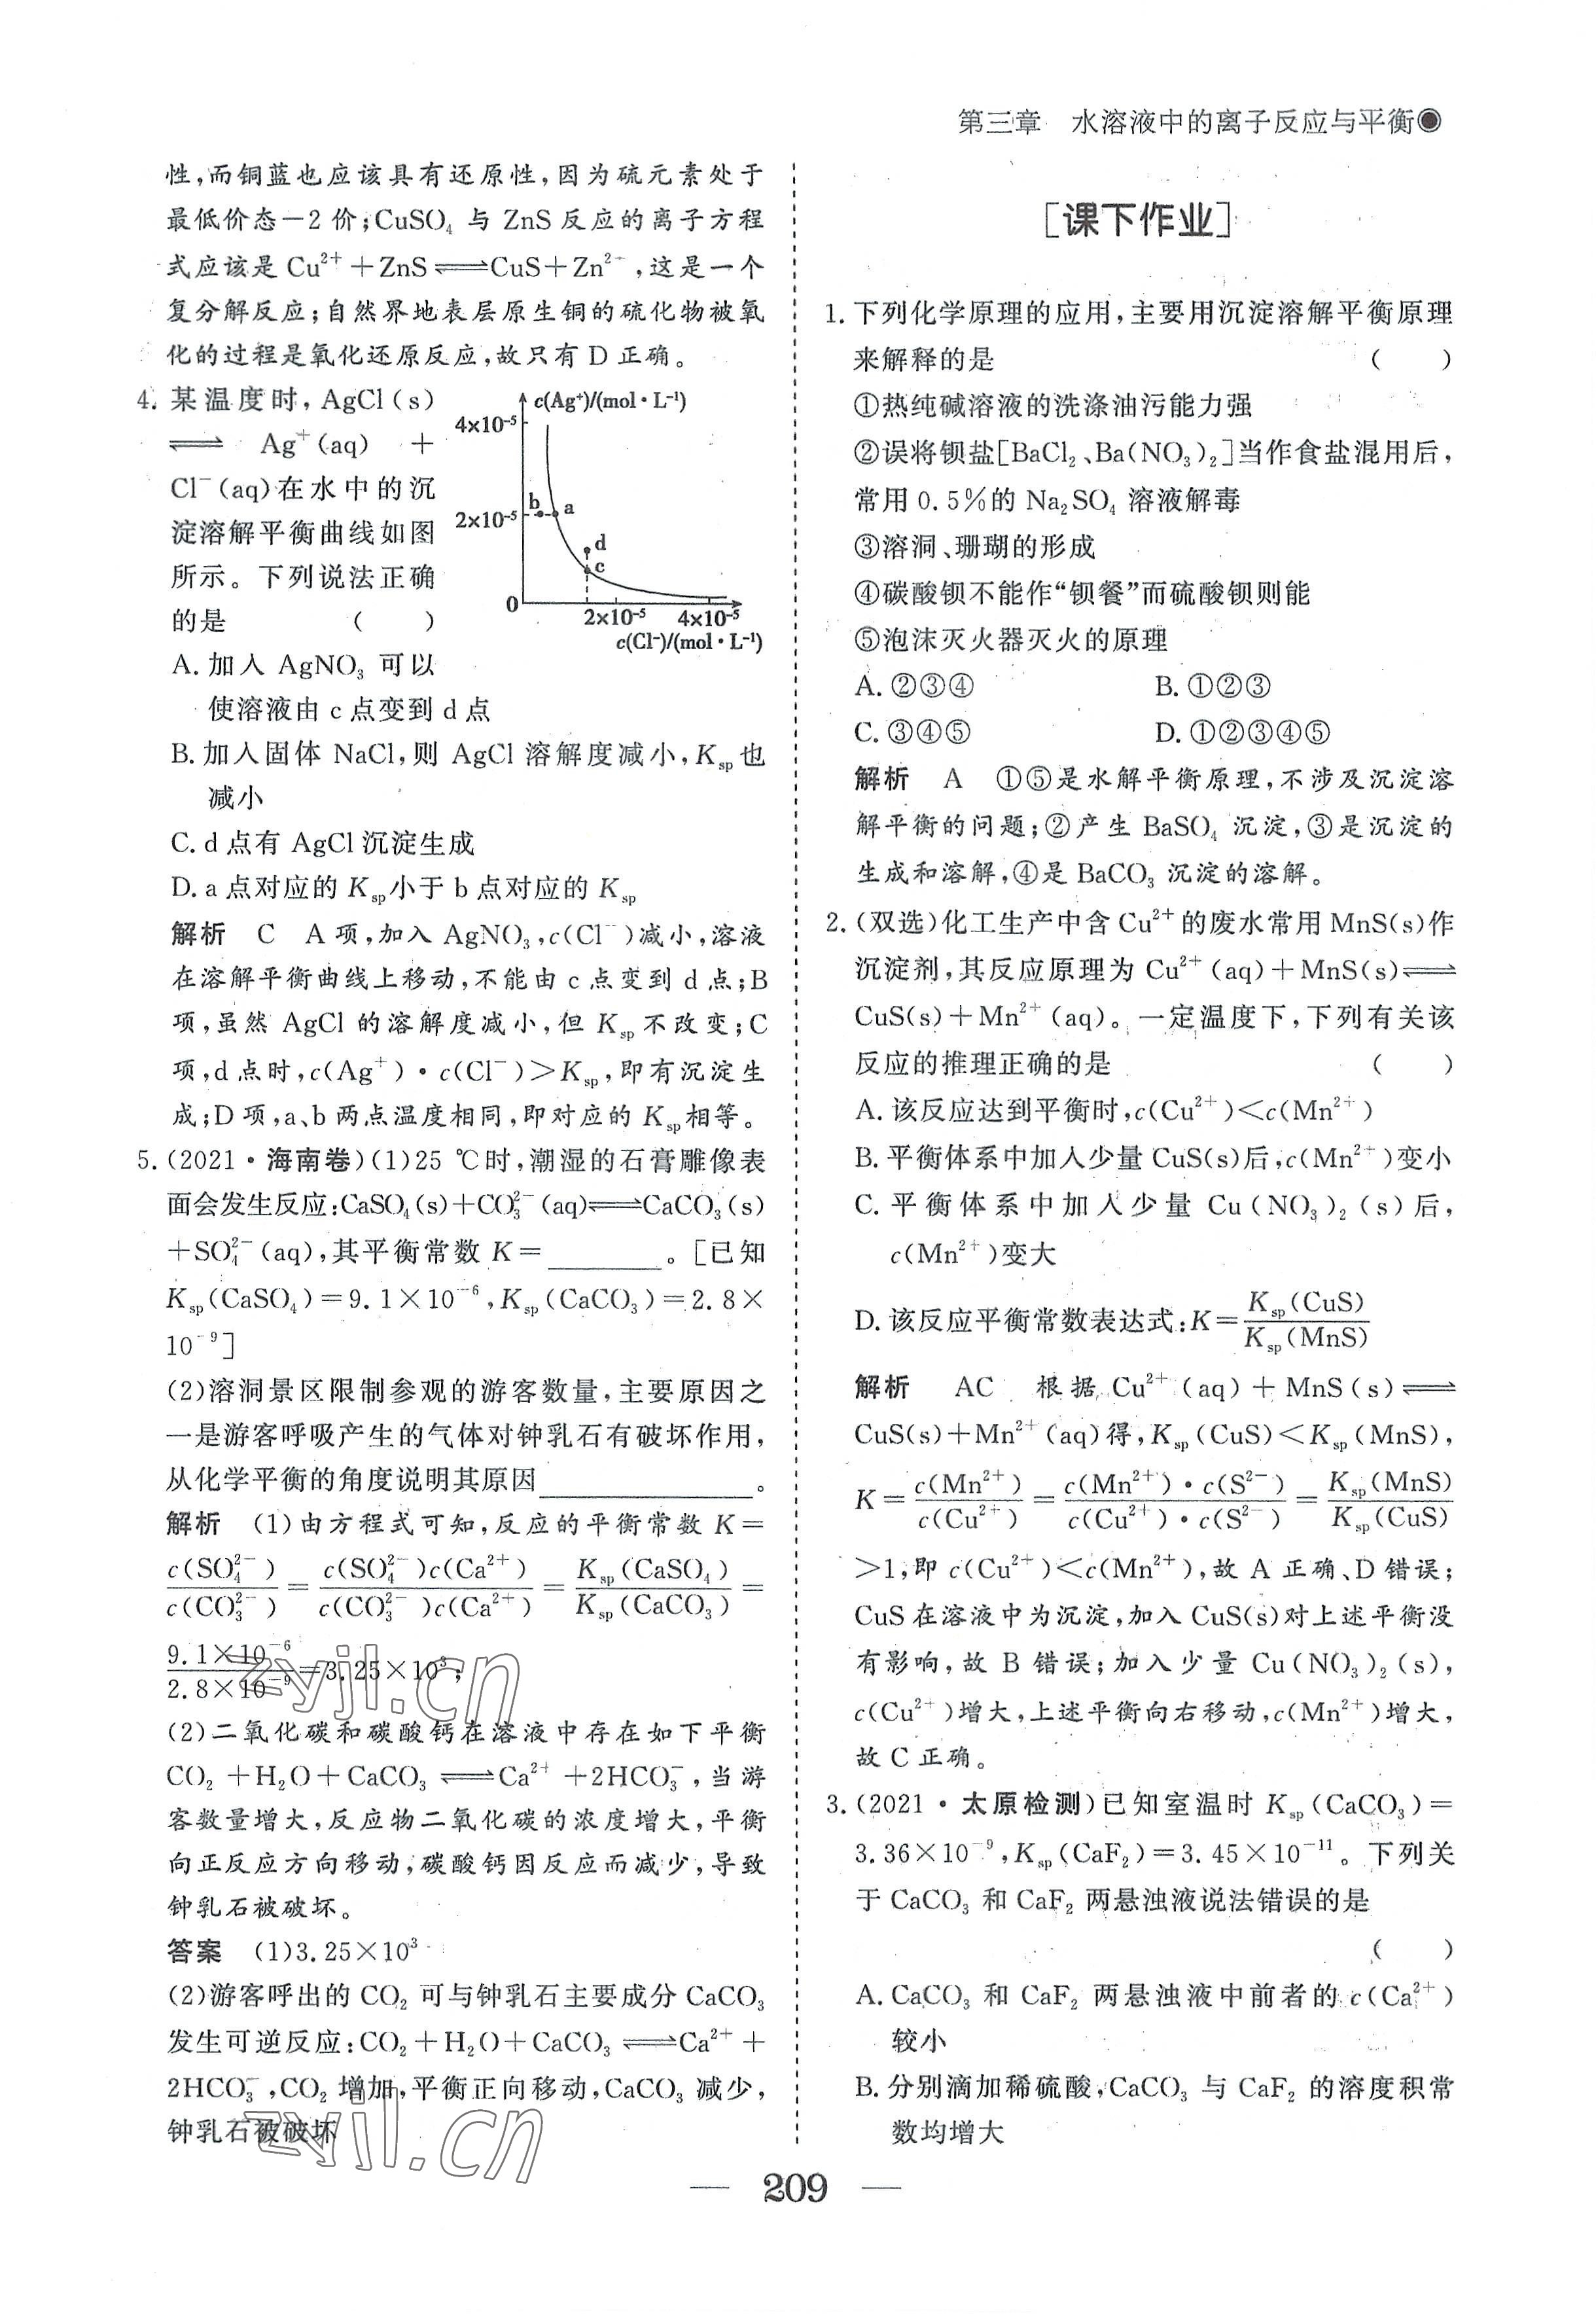 第三章 水溶液中的离子反应与平衡◉
性,而铜蓝也应该具有还原性,因为硫元素处于
最低价态－2 价;CuSO₄ 与 ZnS 反应的离子方程
式应该是 Cu²⁺＋ZnS⇌CuS＋Zn²⁺,这是一个
复分解反应;自然界地表层原生铜的硫化物被氧
化的过程是氧化还原反应,故只有 D 正确。
4. 某温度时, AgCl(s)
⇌ Ag⁺(aq) ＋
Cl⁻(aq)在水中的沉
淀溶解平衡曲线如图
所示。下列说法正确
的是 ( )
c(Ag⁺)/(mol·L⁻¹)
4×10⁻⁵
2×10⁻⁵
b
a
d
c
0
2×10⁻⁵ 4×10⁻⁵
c(Cl⁻)/(mol·L⁻¹)
A. 加入 AgNO₃ 可以
使溶液由 c 点变到 d 点
B. 加入固体 NaCl,则 AgCl 溶解度减小,Kₛₚ也
减小
C. d 点有 AgCl 沉淀生成
D. a 点对应的 Kₛₚ小于 b 点对应的 Kₛₚ
解析 C A 项,加入 AgNO₃,c(Cl⁻)减小,溶液
在溶解平衡曲线上移动,不能由 c 点变到 d 点;B
项,虽然 AgCl 的溶解度减小,但 Kₛₚ不改变;C
项,d 点时,c(Ag⁺)·c(Cl⁻)＞Kₛₚ,即有沉淀生
成;D 项,a、b 两点温度相同,即对应的 Kₛₚ相等。
5. (2021·海南卷)(1)25 ℃时,潮湿的石膏雕像表
面会发生反应:CaSO₄(s)＋CO₃²⁻(aq)⇌CaCO₃(s)
＋SO₄²⁻(aq),其平衡常数 K＝________。[已知
Kₛₚ(CaSO₄)＝9.1×10⁻⁶,Kₛₚ(CaCO₃)＝2.8×
10⁻⁹]
(2)溶洞景区限制参观的游客数量,主要原因之
一是游客呼吸产生的气体对钟乳石有破坏作用,
从化学平衡的角度说明其原因________________。
解析 (1)由方程式可知,反应的平衡常数 K＝
c(SO₄²⁻)/c(CO₃²⁻)＝c(SO₄²⁻)c(Ca²⁺)/c(CO₃²⁻)c(Ca²⁺)＝Kₛₚ(CaSO₄)/Kₛₚ(CaCO₃)＝
9.1×10⁻⁶/2.8×10⁻⁹＝3.25×10³;
(2)二氧化碳和碳酸钙在溶液中存在如下平衡
CO₂＋H₂O＋CaCO₃⇌Ca²⁺＋2HCO₃⁻,当游
客数量增大,反应物二氧化碳的浓度增大,平衡
向正反应方向移动,碳酸钙因反应而减少,导致
钟乳石被破坏。
答案 (1)3.25×10³
(2)游客呼出的 CO₂ 可与钟乳石主要成分 CaCO₃
发生可逆反应:CO₂＋H₂O＋CaCO₃⇌Ca²⁺＋
2HCO₃⁻,CO₂ 增加,平衡正向移动,CaCO₃ 减少,
钟乳石被破坏
[课下作业]
1. 下列化学原理的应用,主要用沉淀溶解平衡原理
来解释的是 ( )
①热纯碱溶液的洗涤油污能力强
②误将钡盐[BaCl₂、Ba(NO₃)₂]当作食盐混用后,
常用 0.5%的 Na₂SO₄ 溶液解毒
③溶洞、珊瑚的形成
④碳酸钡不能作“钡餐”而硫酸钡则能
⑤泡沫灭火器灭火的原理
A. ②③④ B. ①②③
C. ③④⑤ D. ①②③④⑤
解析 A ①⑤是水解平衡原理,不涉及沉淀溶
解平衡的问题;②产生 BaSO₄ 沉淀,③是沉淀的
生成和溶解,④是 BaCO₃ 沉淀的溶解。
2. (双选)化工生产中含 Cu²⁺的废水常用 MnS(s)作
沉淀剂,其反应原理为 Cu²⁺(aq)＋MnS(s)⇌
CuS(s)＋Mn²⁺(aq)。一定温度下,下列有关该
反应的推理正确的是 ( )
A. 该反应达到平衡时,c(Cu²⁺)＜c(Mn²⁺)
B. 平衡体系中加入少量 CuS(s)后,c(Mn²⁺)变小
C. 平衡体系中加入少量 Cu(NO₃)₂(s)后,
c(Mn²⁺)变大
D. 该反应平衡常数表达式:K＝Kₛₚ(CuS)/Kₛₚ(MnS)
解析 AC 根据 Cu²⁺(aq)＋MnS(s)⇌
CuS(s)＋Mn²⁺(aq)得,Kₛₚ(CuS)＜Kₛₚ(MnS),
K＝c(Mn²⁺)/c(Cu²⁺)＝c(Mn²⁺)·c(S²⁻)/c(Cu²⁺)·c(S²⁻)＝Kₛₚ(MnS)/Kₛₚ(CuS)
＞1,即 c(Cu²⁺)＜c(Mn²⁺),故 A 正确、D 错误;
CuS 在溶液中为沉淀,加入 CuS(s)对上述平衡没
有影响,故 B 错误;加入少量 Cu(NO₃)₂(s),
c(Cu²⁺)增大,上述平衡向右移动,c(Mn²⁺)增大,
故 C 正确。
3. (2021·太原检测)已知室温时 Kₛₚ(CaCO₃)＝
3.36×10⁻⁹,Kₛₚ(CaF₂)＝3.45×10⁻¹¹。下列关
于 CaCO₃ 和 CaF₂ 两悬浊液说法错误的是
( )
A. CaCO₃ 和 CaF₂ 两悬浊液中前者的 c(Ca²⁺)
较小
B. 分别滴加稀硫酸,CaCO₃ 与 CaF₂ 的溶度积常
数均增大
— 209 —
zyjl.cn
zyjl.cn